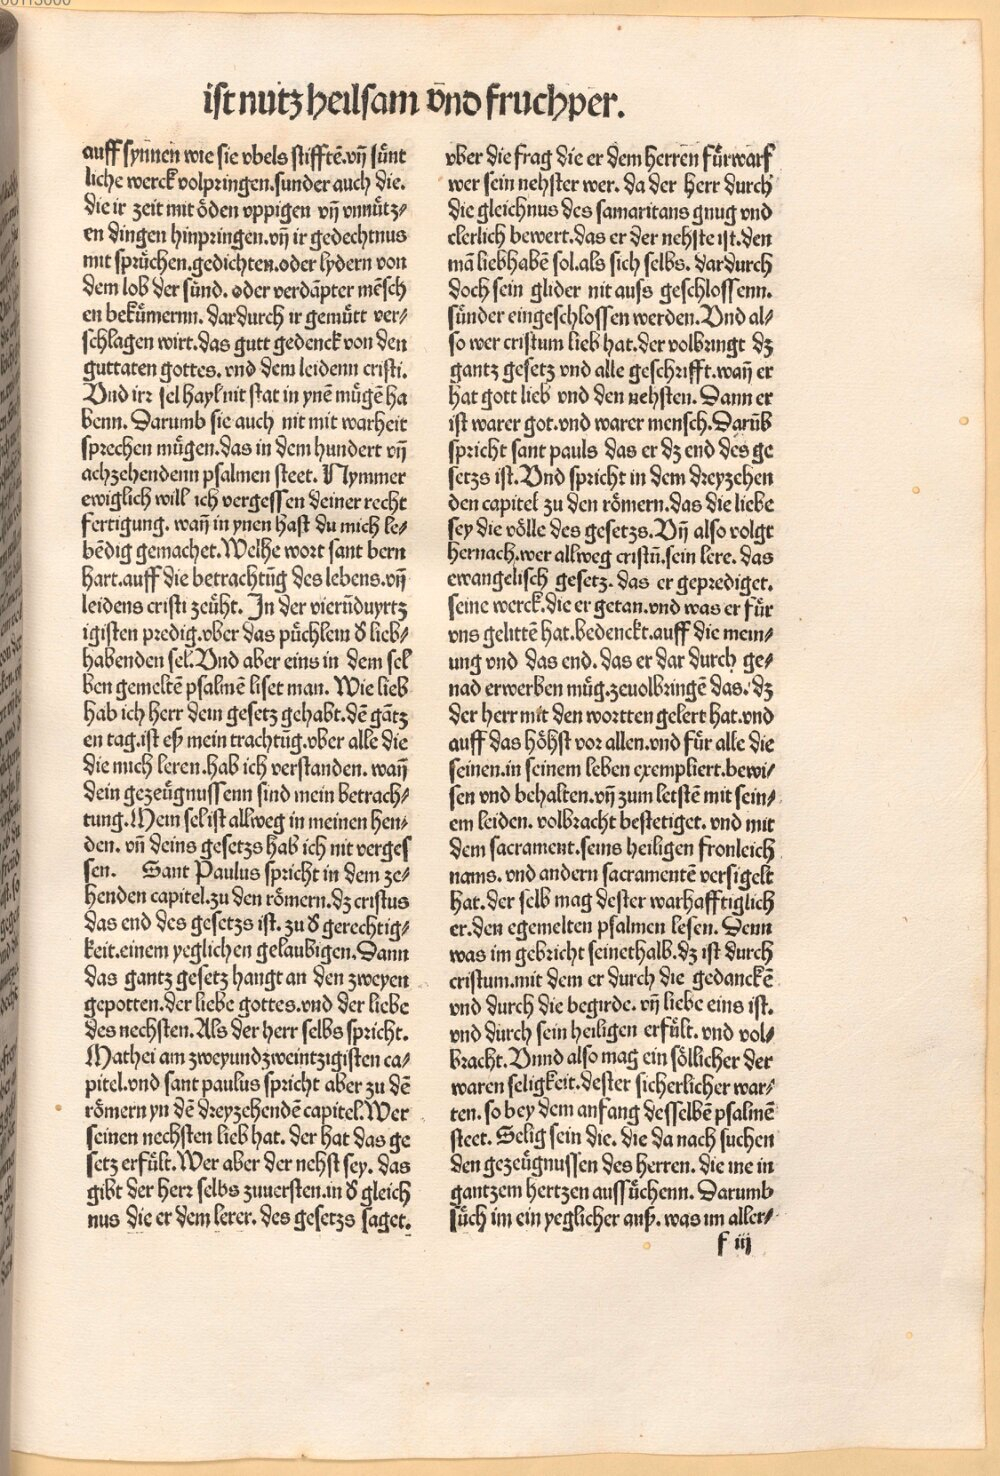 ist nutz heilsam vnd fruchper.
auff synnen wie sie vbels stifftē.vn̄ sünt
liche werck volpringen.sunder auch die.
die ir zeit mit öden vppigen vn̄ vnnütz⸗
en dingen hinpringen.vn̄ ir gedechtnus
mit sprüchen.gedichten.oder lydern von
dem lob der sünd. oder verdāpter mēsch
en bekümernn. dardurch ir gemütt ver⸗
schlagen wirt.das gutt gedenck von den
guttaten gottes. vnd dem leidenn cristi.
Vnd irr sel hayl nit stat in ynē mügē ha
benn. Darumb sie auch nit mit warheit
sprechen mügen.das in dem hundert vn̄
achzehendenn psalmen steet. Nymmer
ewiglich will ich vergessen deiner recht
fertigung. wan̄ in ynen hast du mich le⸗
bēdig gemachet.Welhe wort sant bern
hart.auff die betrachtūg des lebens.vn̄
leidens cristi zeüht. In der vierūduyrtz
igisten predig.vber das püchlein ď lieb⸗
habenden sel.Vnd aber eins in dem sel
ben gemeltē psalmē liset man. Wie lieb
hab ich herr dein gesetz gehabt.dē gātz
en tag.ist eß mein trachtūg.vber alle die
die mich leren.hab ich verstanden. wan̄
dein gezeügnussenn sind mein betrach⸗
tung.Mein sel ist allweg in meinen hen⸗
den. vn̄ deins gesetzs hab ich nit verges
sen. Sant Paulus spricht in dem ze⸗
henden capitel.zu den römern.dz cristus
das end des gesetzs ist. zu ď gerechtig⸗
keit.einem yeglichen gelaubigen.Dann
das gantz gesetz hangt an den zweyen
gepotten.der liebe gottes.vnd der liebe
des nechsten.Als der herr selbs spricht.
Mathei am zweyundzweintzigisten ca⸗
pitel.vnd sant paulus spricht aber zu dē
römern yn dē dreyzehendē capitel.Wer
seinen nechsten lieb hat. der hat das ge
setz erfült.Wer aber der nehst sey. das
gibt der herr selbs zuuersten.in ď gleich
nus die er dem lerer. des gesetzs saget.
vber die frag die er dem herren fürwarf
wer sein nehster wer. da der herr durch
die gleichnus des samaritans gnug vnd
clerlich bewert.das er der nehste ist.den
mā liebhabē sol.als sich selbs. dardurch
doch sein glider nit auss geschlossenn.
sünder eingeschlossen werden.Vnd al⸗
so wer cristum lieb hat.der volbringt dz
gantz gesetz vnd alle geschrifft.wan̄ er
hat gott lieb vnd den nehsten. Dann er
ist warer got.vnd warer mensch.Darūb
spricht sant pauls das er dz end des ge
setzs ist.Vnd spricht in dem dreyzehen
den capitel zu den römern.das die liebe
sey die völle des gesetzs.Vn̄ also volgt
hernach.wer allweg cristū.sein lere. das
ewangelisch gesetz. das er geprediget.
seine werck.die er getan.vnd was er für
vns gelittē hat.bedenckt.auff die mein⸗
ung vnd das end. das er dar durch ge⸗
nad erwerben müg.zeuolbringē das. dz
der herr mit den wortten gelert hat.vnd
auff das höhst vor allen.vnd für alle die
seinen.in seinem leben exempliert.bewi⸗
sen vnd behalten.vn̄ zum letstē mit sein⸗
em leiden. volbracht bestetiget. vnd mit
dem sacrament.seins heiligen fronleich
nams. vnd andern sacramentē versigelt
hat.der selb mag dester warhafftiglich
er.den egemelten psalmen lesen. Denn
was im gebricht seinethalb.dz ist durch
cristum.mit dem er durch die gedanckē
vnd durch die begirde. vn̄ liebe eins ist.
vnd durch sein heiligen erfült. vnd vol⸗
bracht.Vnnd also mag ein söllicher der
waren seligkeit.dester sicherlicher war⸗
ten. so bey dem anfang desselbē psalmē
steet. Selig sein die. die da nach suchen
den gezeügnussen des herren. die ine in
gantzem hertzen aussüchenn. Darumb
süch im ein yeglicher auß. was im aller⸗
f iij